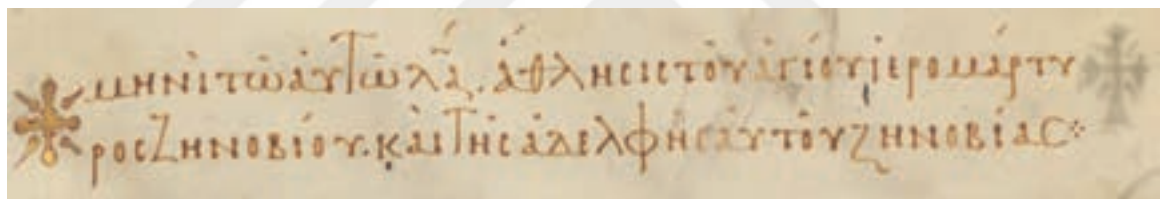 μηνὶ τῶ αὐτῶ λᾱ. ἄθλησις τοῦ ἁγίου ἱερομάρτυ
ρος Ζηνοβίου. καὶ τῆς ἀδελφῆς αὐτοῦ ζηνοβίας